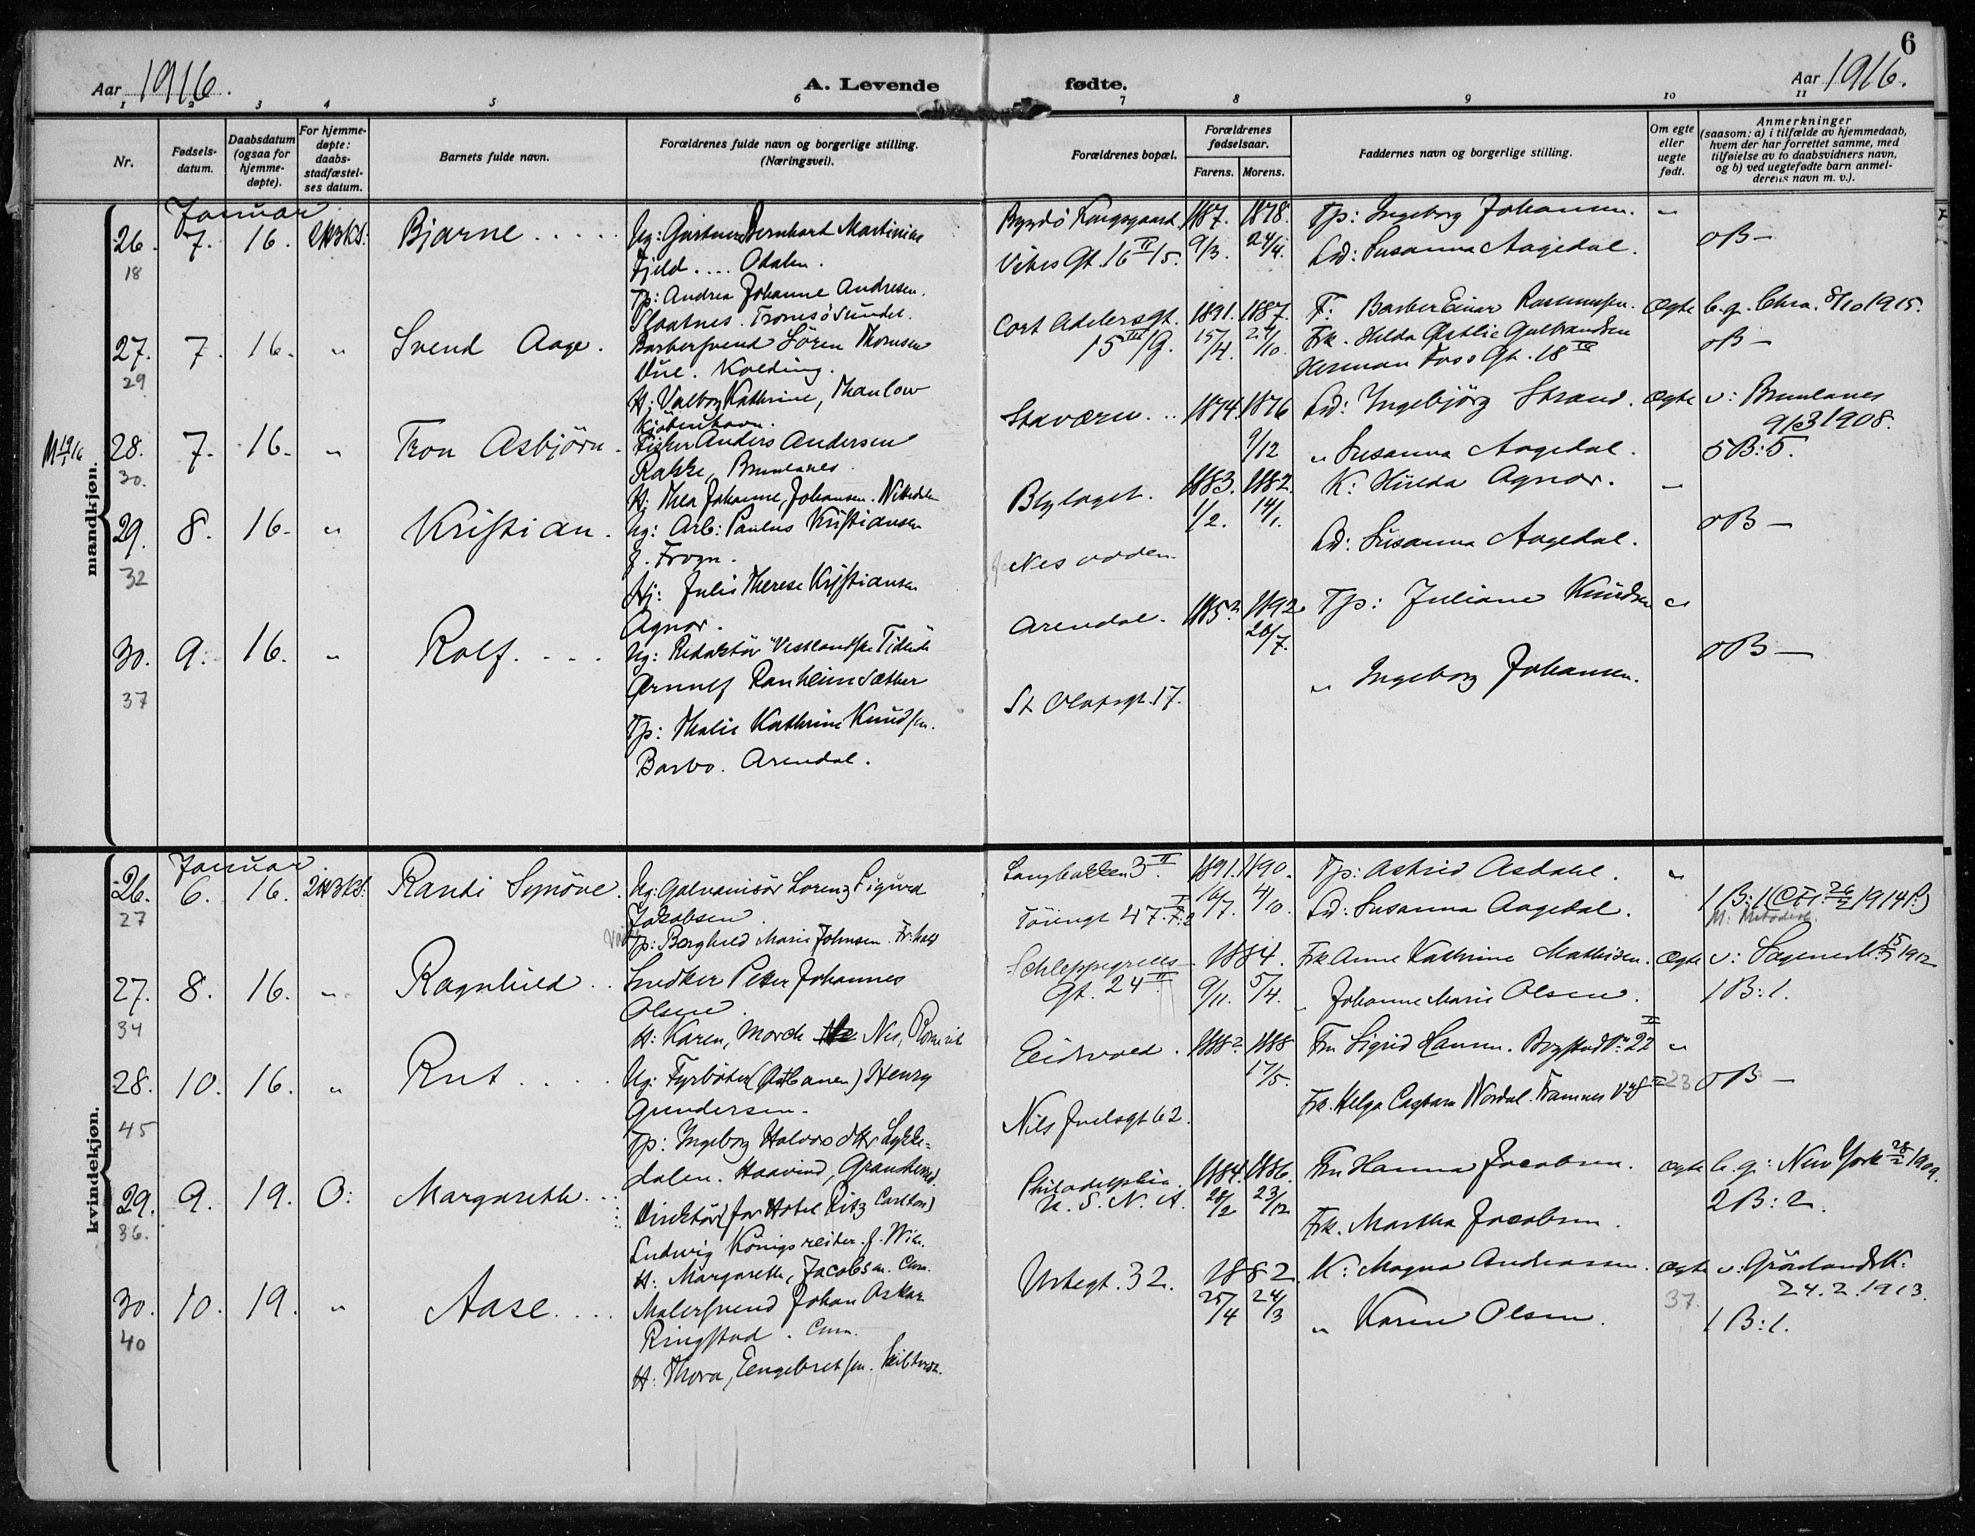 6
Aar 1916.
A. Levende fødte.
Aar 1916.
1 2 3 4 5 6 7 8 9 10 11
Nr.
Fødsels-
datum.
Daabsdatum
(ogsaa for
hjemme-
døpte).
For hjemme-
døpte:
daabs-
stadfæstel-
ses datum.
Barnets fulde navn.
Forældrenes fulde navn og borgerlige stilling.
(Næringsvei).
Forældrenes bopæl.
Forældrenes
fødselsaar.
Farens. Morens.
Faddernes navn og borgerlige stilling.
Om egte
eller
uegte
født.
Anmerkninger
(saasom: a) i tilfælde av hjemmedaab,
hvem der har forrettet samme, med
tilføielse av to daabsvidners navn,
og b) ved uegtefødte barn anmel-
derens navn m. v.).
mandkjøn.
Januar
26. 7. 16. Bjarne
18
Ug: Gartner Bernhard Martinius
Fjeld .... Odalen.
Tp: Andrea Johanne Andresen.
Slaatnes. Tromsösundet.
Bygdö Kongsgaard
Vibes Gt. 16 II 15.
1887. 1878.
9/3. 24/4.
Tp: Ingeborg Johansen. "
Ld: Susanna Aagedal.
0B —
27. 7. 16. " Svend Aage.
29
Barbersvend Sören Thomsen
Kolding.
H: Valborg Kathrine, Thanlow
Kjöbenhavn.
Cort Adelersgt.
15 III/G.
1891. 1887.
15/4. 21/10.
F: Barber Einar Rasmussen. Ægte
Frk. Hilda Østlie Gulbrandsen
Herman Foss Gt. 18 IV
b.g. Chra. 8/10 1915.
0B —
28. 7. 16. " Tron Asbjörn.
30.
Fisker Anders Andersen
Rakke, Brunlanes.
H: Thea Johanne, Johansen.
Staværn ..
1874. 1876
9/12
Ld: Ingebjörg Strand. Ægte
" Susanna Aagedal.
v: Brunlanes
9/3 1908.
5B: 5.
29. 8. 16. " Kristian.
32
Ug: Arb: Paulus Kristiansen
f. Frogn.
Hj: Julie Therese Kristiansen
Agnor.
Blylaget.
Nesodden
1883. 1882.
1/2. 14/1.
K: Hilda Agnor. "
Ld: Susanna Aagedal.
0B —
30. 9. 16. " Rolf. ...
37
Ug: Redaktör "Vestlandske Tidende"
Arnulf Ranheimsæther
Tp: Thalie Kathrine Knudsen.
Barbo. Arendal.
Arendal.
St Olafsgt. 17.
1892
26/7.
Tp: Juliane Knudsen "
" Ingeborg Johansen.
0B —
kvindekjøn.
Januar
26. 6. 16. Randi Synöve.
27
Ug: Galvanisör Lorenz Sigurd
Jakobsen.
Tp: Borghild Marie Johnsen.
Langbakken 3 II.
Töiengt 47
1891. 1890.
16/7. 4/10.
Tp: Astrid Asdahl. "
Ld: Susanna Aagedal.
27. 8. 16. " Ragnhild ..
34
Snedker Peter Johannes
Olsen.
H: Karen, Morck Nes, Romerike
Schleppegrells
Gt. 24 II.
1884.
9/11. 5/4.
Frk. Anne Kathrine Mathisen. Ægte
" Johanne Marie Olsen.
1B: 1.
28. 10. 16. " Rut ....
45
Ug: Fyrböter (Østbanen) Henry
Gundersen.
Tp: Ingeborg Halvorsdtr Lykke-
dalen. Haavind, Granherred.
Eidsvold.
Nils Juelsgt 62.
1882. 1888
17/5.
Fru Sigrid Hamm. Bogstadv. 22 II "
Frk. Helga Caspara Nordal. Framnes
0B —
29. 9. 19. O: Margareth ...
36.
Direktör (for Hotel Ritz Carlton)
Ludwig Königsreiter. f. Wien.
H: Margareth, Jacobsen. Chra.
Philadelphia.
U. S. N. A.
1884. 1886.
28/2 23/12
Fru Hanna Jacobsen. Ægte
Frk. Martha Jacobsen.
b.g: New York 28/2 1909.
2B: 2.
30. 10. 19. " Aase ....
40
Malersvend Johan Oskar
Ringstad. Chra.
H: Thora, Eengebretsen.
Urtegt. 32.
1882.
25/4 24/3
K: Magna Andreassen. Ægte
" Karen Olsen.
37.
v: Grönlands K.
24. 2. 1913.
1B: 1.